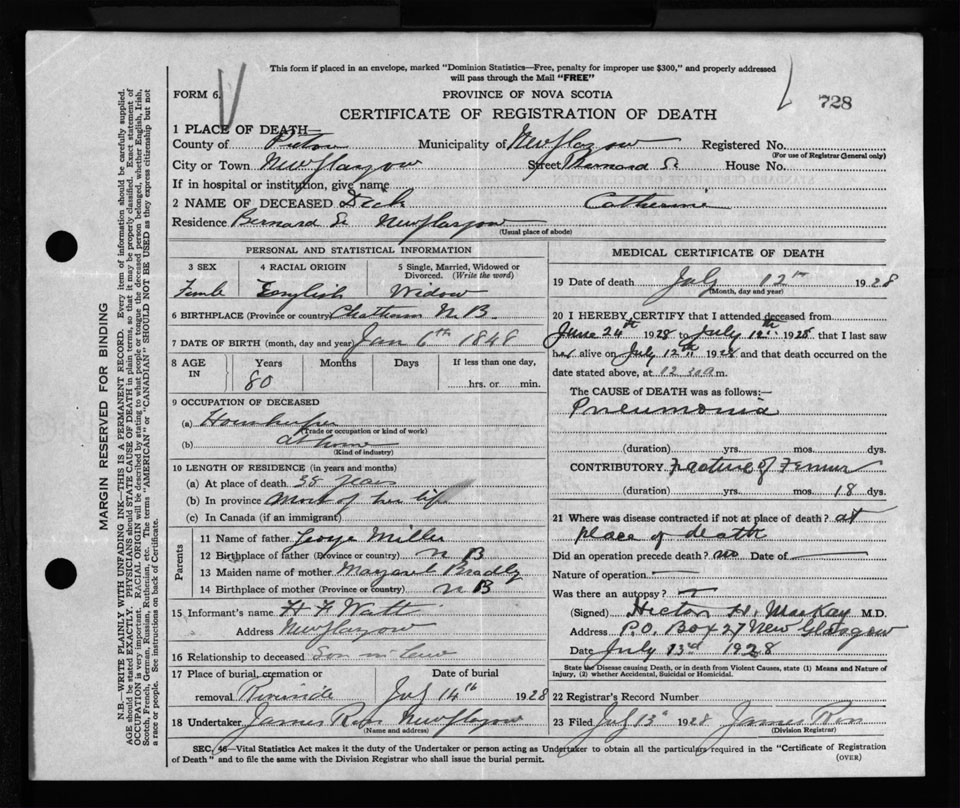 This form if placed in an envelope, marked "Dominion Statistics—Free, penalty for improper use $300," and properly addressed
will pass through the Mail "FREE"
FORM 6.
PROVINCE OF NOVA SCOTIA
728
CERTIFICATE OF REGISTRATION OF DEATH
1 PLACE OF DEATH—
County of Pictou Municipality of New Glasgow Registered No.
(For use of Registrar General only)
City or Town New Glasgow Street Bernard St House No.
If in hospital or institution, give name
2 NAME OF DECEASED Dick Catherine
Residence Bernard St New Glasgow
(Usual place of abode)
PERSONAL AND STATISTICAL INFORMATION
3 SEX 4 RACIAL ORIGIN 5 Single, Married, Widowed or Divorced. (Write the word)
Female English Widow
6 BIRTHPLACE (Province or country) Chatham N B.
7 DATE OF BIRTH (month, day and year) Jan 6th 1848
8 AGE IN Years Months Days If less than one day,
80 hrs. or min.
9 OCCUPATION OF DECEASED
(a) Housekeeper
(Trade or occupation or kind of work)
(b) at home
(Kind of industry)
10 LENGTH OF RESIDENCE (in years and months)
(a) At place of death 38 years
(b) In province Most of her life
(c) In Canada (if an immigrant)
Parents
11 Name of father George Miller
12 Birthplace of father (Province or country) N B
13 Maiden name of mother Margaret Bradly
14 Birthplace of mother (Province or country) N B
15 Informant's name H F Watt
Address New Glasgow
16 Relationship to deceased Son in law
17 Place of burial, cremation or Date of burial
removal Riverside July 14th 1928
18 Undertaker James Ross New Glasgow
(Name and address)
MEDICAL CERTIFICATE OF DEATH
19 Date of death July 12th 1928
(Month, day and year)
20 I HEREBY CERTIFY that I attended deceased from
June 24th 1928 to July 12th 1928 that I last saw
her alive on July 12th 1928 and that death occurred on the
date stated above, at 12 30 a m.
The CAUSE OF DEATH was as follows:—
Pneumonia
(duration) yrs. mos. dys.
CONTRIBUTORY Fracture of Femur
(duration) yrs. mos. 18 dys.
21 Where was disease contracted if not at place of death? at
place of death
Did an operation precede death? no Date of
Nature of operation
Was there an autopsy?
(Signed) Hector H. MacKay M.D.
Address P.O. Box 27 New Glasgow
Date July 13rd 1928
State the Disease causing Death, or in death from Violent Causes, state (1) Means and Nature of
Injury, (2) whether Accidental, Suicidal or Homicidal.
22 Registrar's Record Number
23 Filed July 13th 1928 James Ross
(Division Registrar)
SEC. 46—Vital Statistics Act makes it the duty of the Undertaker or person acting as Undertaker to obtain all the particulars required in the "Certificate of Registration
of Death" and to file the same with the Division Registrar who shall issue the burial permit. (OVER)
MARGIN RESERVED FOR BINDING
N.B.—WRITE PLAINLY WITH UNFADING INK—THIS IS A PERMANENT RECORD. Every item of information should be carefully supplied.
AGE should be stated EXACTLY. PHYSICIANS should STATE CAUSE OF DEATH in plain terms, so that it may be properly classified. Exact statement of
OCCUPATION is very important. RACIAL ORIGIN will be described by stating to what people or tongue the deceased person belonged, whether English, Irish,
Scotch, French, German, Russian, Ruthenian, etc. The terms "AMERICAN" or "CANADIAN" SHOULD NOT BE USED as they express citizenship but not
a race or people. See instructions on back of Certificate.